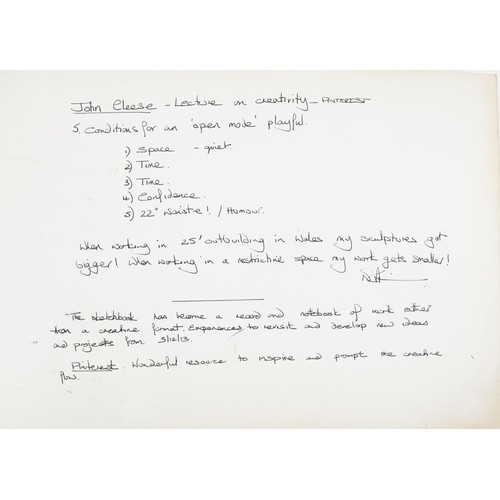 John Cleese - Lecture on creativity - PINTEREST
5. Conditions for an 'open mode' playful.
1) Space - quiet
2) Time.
3) Time.
4) Confidence.
5) 22" Waist! / Humour.
When working in 25' outbuilding in Wales my sculptures got
bigger! When working in a restrictive space my work gets smaller!
The sketchbook has become a record and notebook of work other
than a creative format. Experiences to revisit and develop new ideas
and projects from 3/12/13.
Pinterest. Wonderful resource to inspire and prompt the creative
flow.